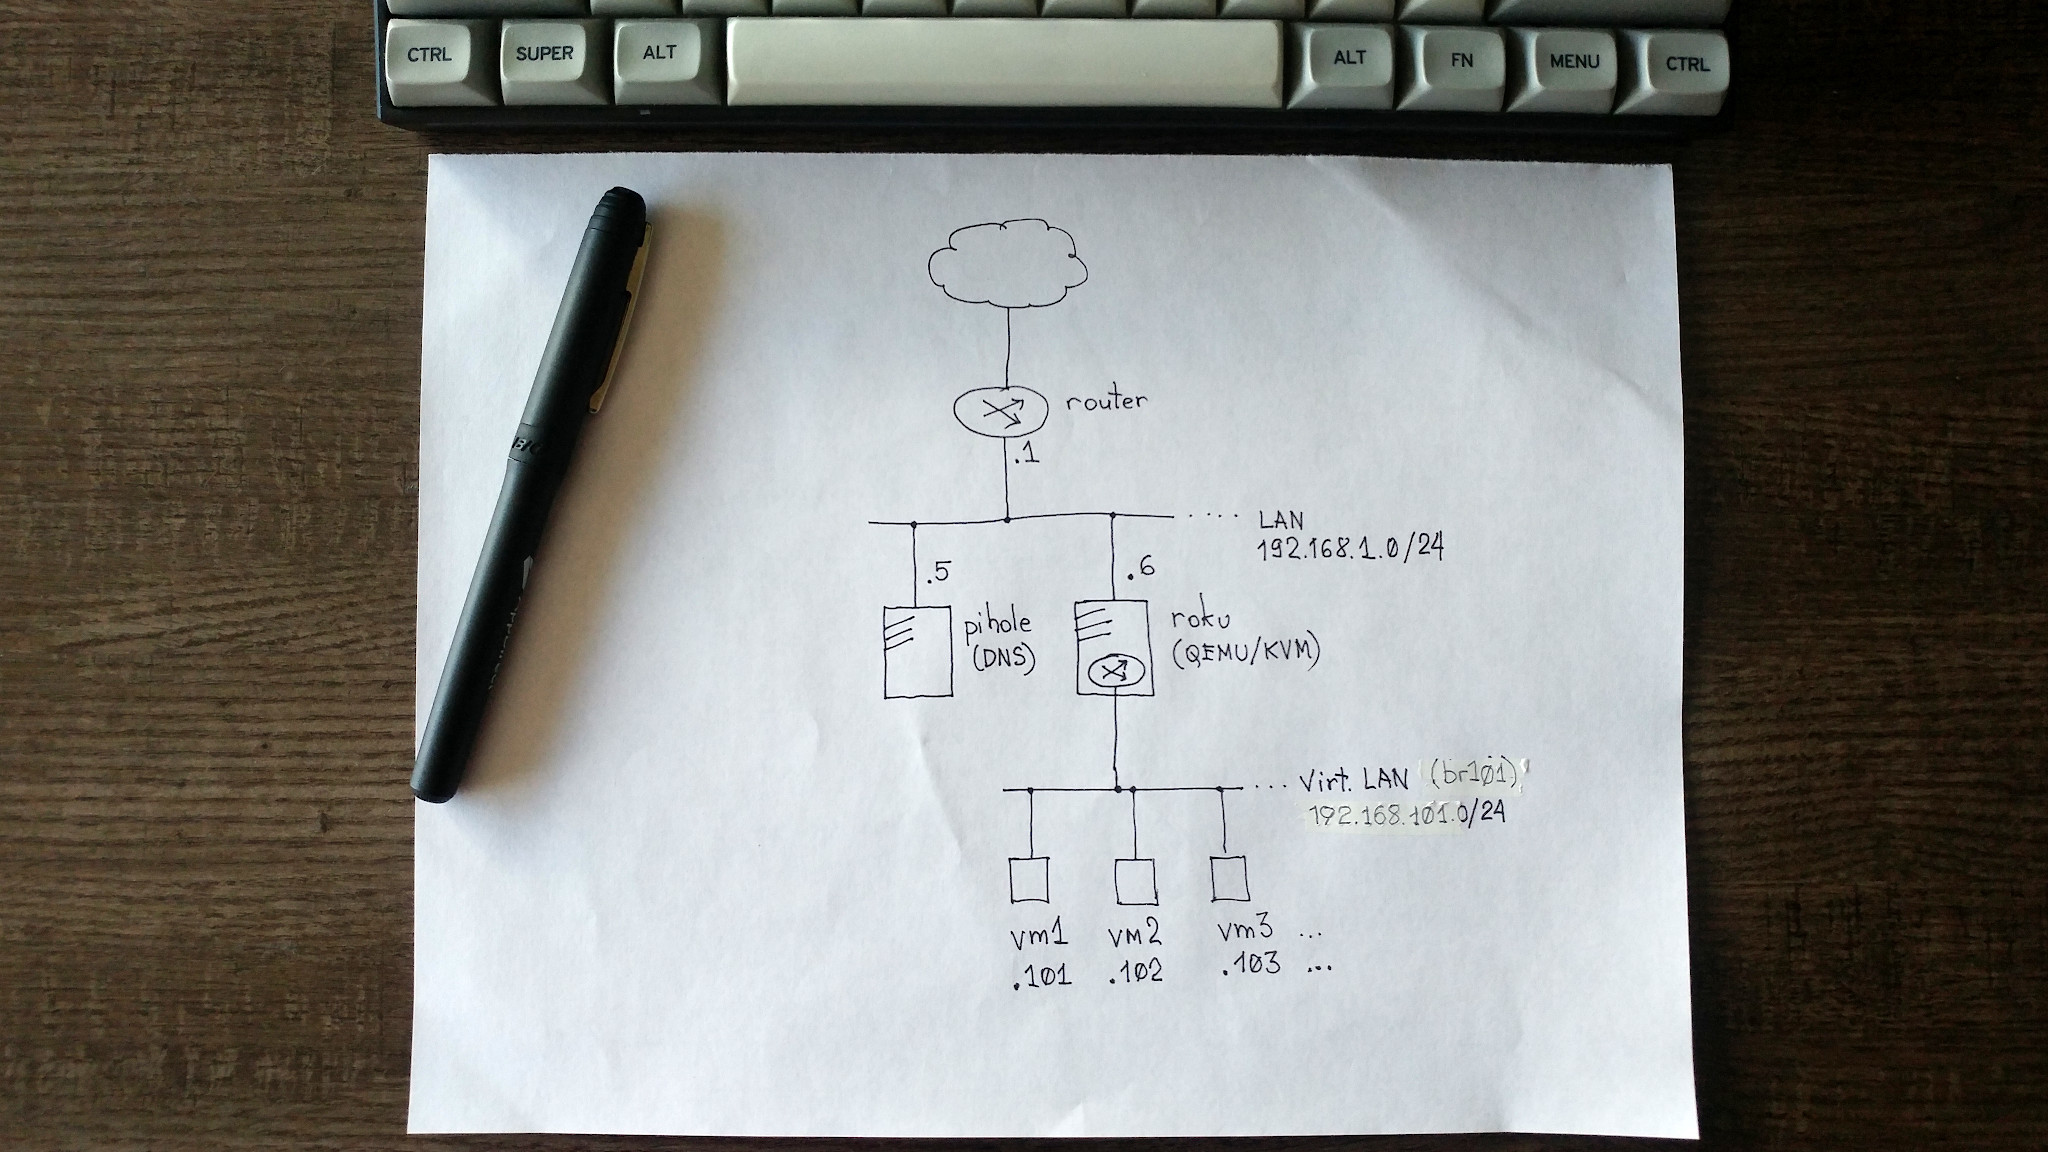 CTRL SUPER ALT ALT FN MENU CTRL
router
.1
LAN
192.168.1.0/24
.5
.6
pihole
(DNS)
roku
(QEMU/KVM)
Virt. LAN (br101)
192.168.101.0/24
vm1 vm2 vm3 ...
.101 .102 .103 ...
BIC